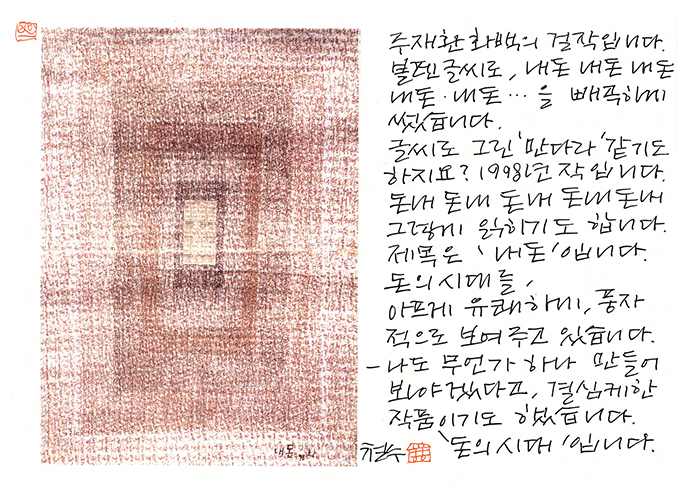 주재환 화백의 걸작입니다.
볼펜 글씨로, 내돈 내돈 내돈
내돈·내돈… 을 빼곡하게
썼습니다.
글씨로 그린 '만다라' 같기도
하지요? 1998년 작 입니다.
돈내 돈내 돈내 돈내 돈내
그렇게 읽히기도 합니다.
제목은 '내돈' 입니다.
돈의 시대를,
아프게 유쾌하게, 풍자
적으로 보여주고 있습니다.
-나도 무언가 하나 만들어
보아야겠다고, 결심케한
작품이기도 했습니다.
철수 '돈의 시대' 입니다.
내돈